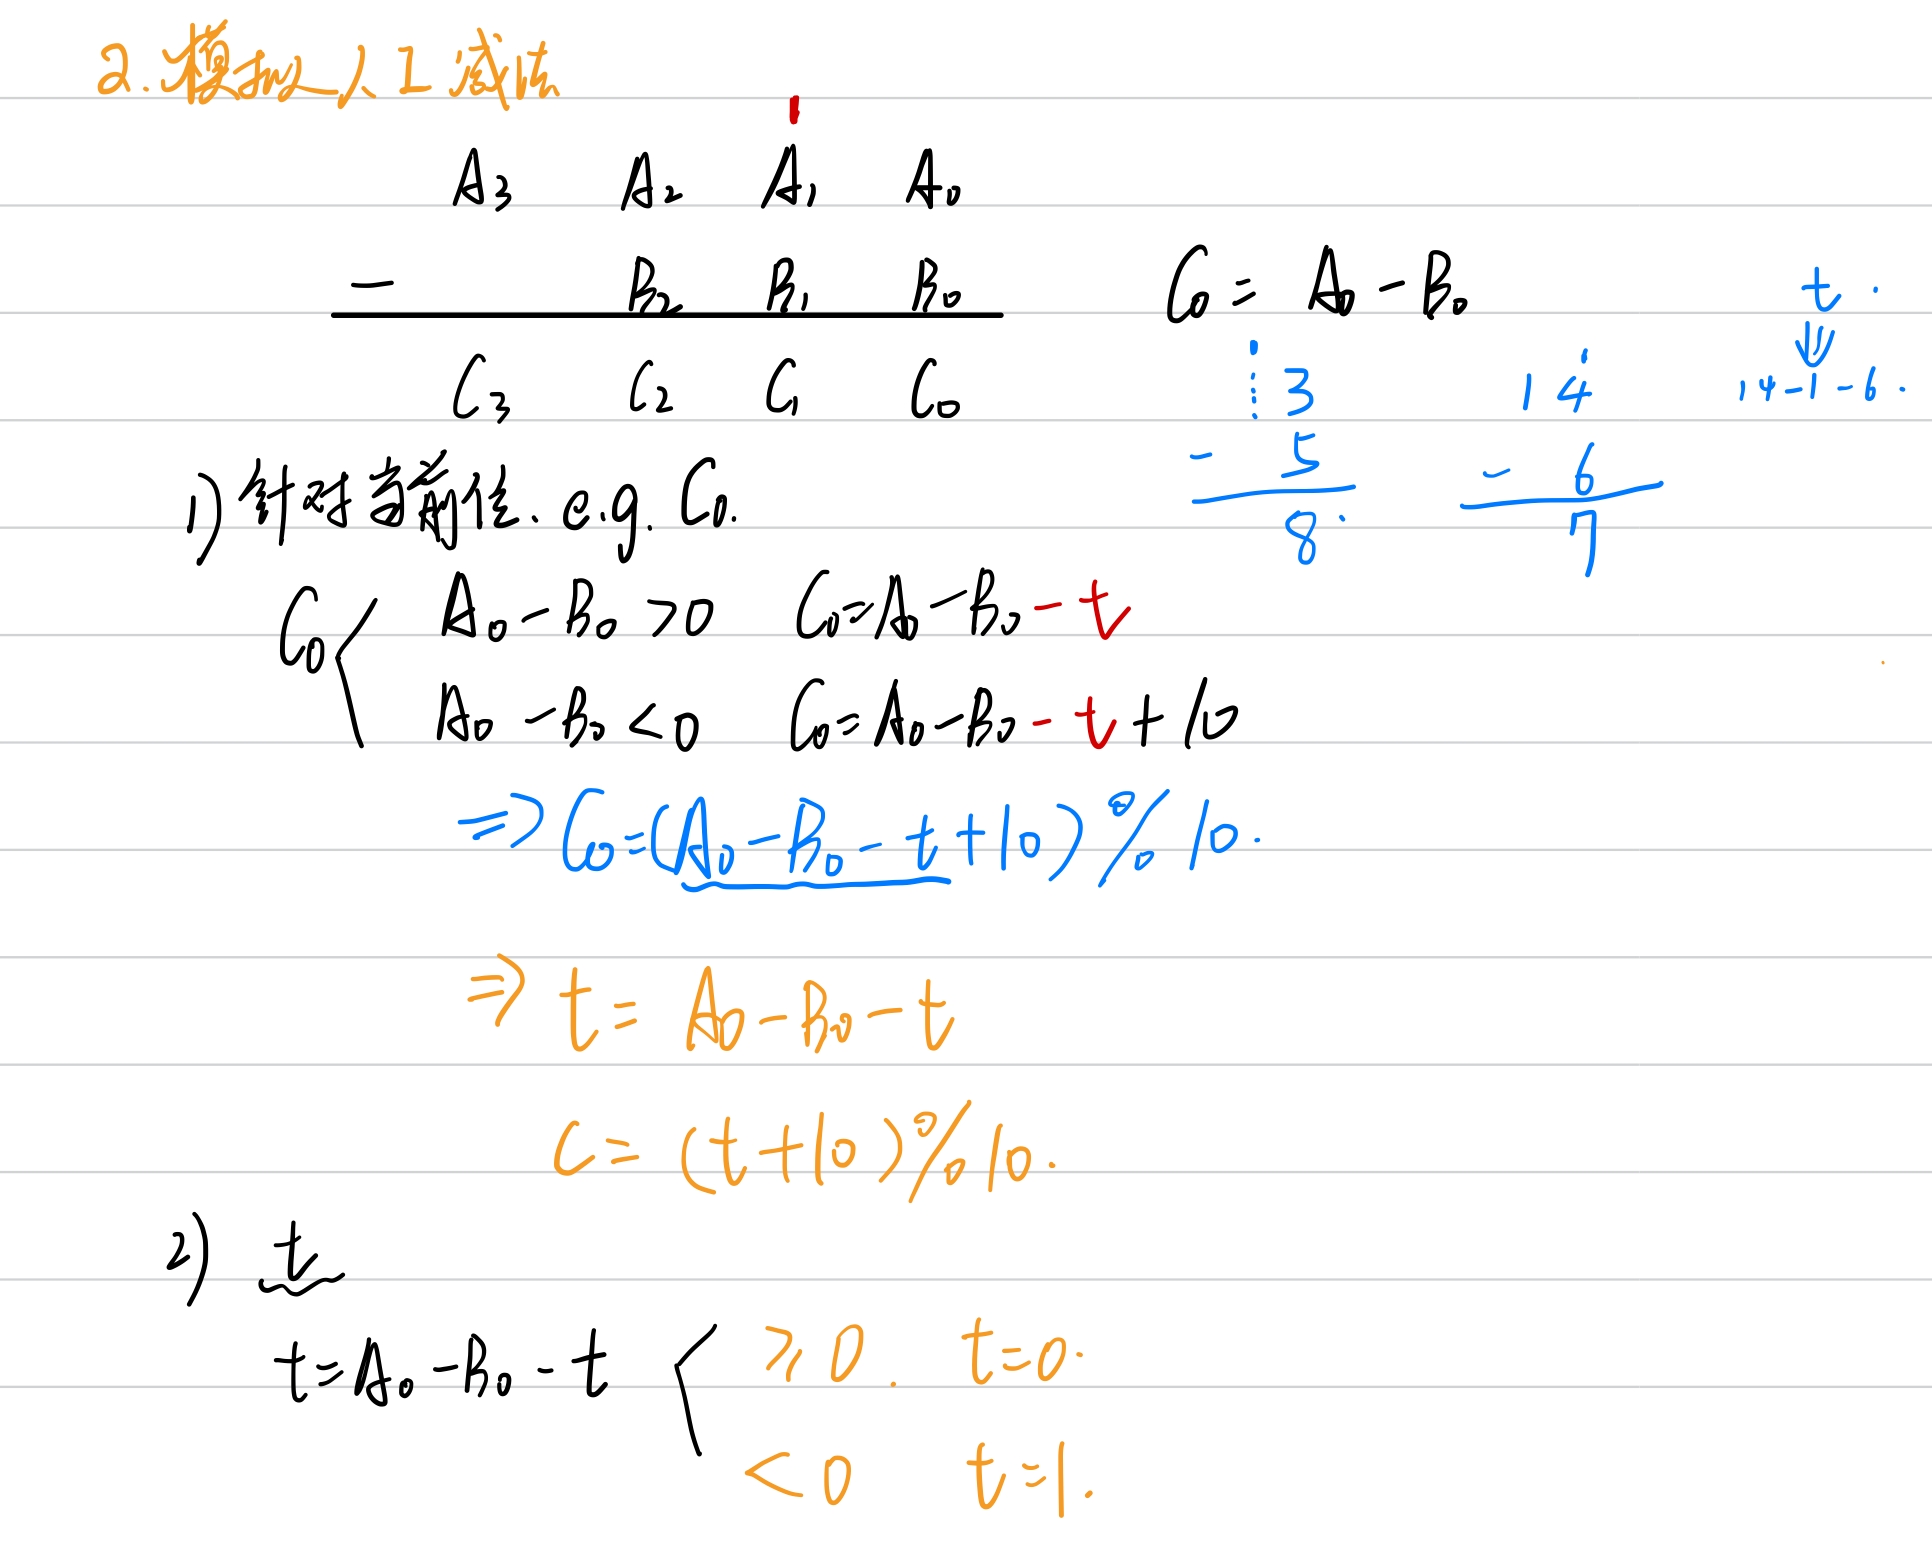 2.模拟人工减法
A₃ A₂ A₁ A₀
- B₂ B₁ B₀
C₃ C₂ C₁ C₀
C₀ = A₀ - B₀
3
- 5
8.
14
- 6
7
t.
⇓
14-1-6.
1) 针对当前位. e.g. C₀.
C₀ { A₀ - B₀ > 0 C₀ = A₀ - B₀ - t
A₀ - B₀ < 0 C₀ = A₀ - B₀ - t + 10
⇒ C₀ = (A₀ - B₀ - t + 10) % 10.
⇒ t = A₀ - B₀ - t
C = (t + 10) % 10.
2) t
t = A₀ - B₀ - t { ⩾ 0. t = 0.
< 0 t = 1.